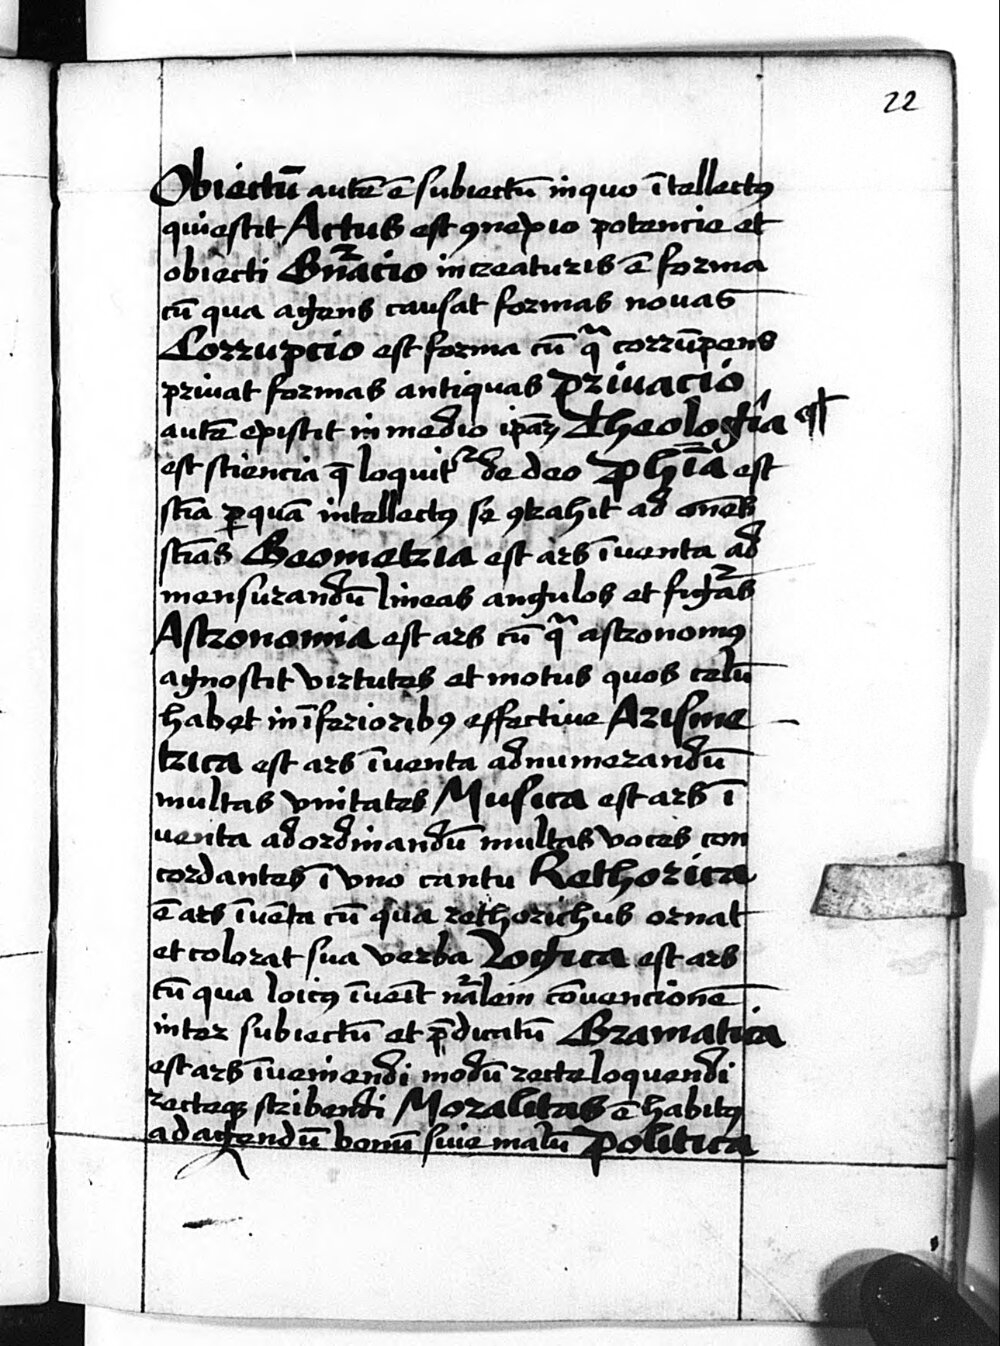 22
Obiectū autē ē subiectū in quo ītellectꝰ
quiescit Actus est ꝯnexio potencie et
obiecti Gn̄acio in creaturis ē forma
cū qua agens causat formas nouas
Corrupcio est forma cū qͣ corrūpens
priuat formas antiquas Priuacio
autē existit in medio ipaꝝ Theologia
est sciencia q̄ loquitͬ de deo Phīa est
scīa ꝑ quā intellectꝰ se ꝯtrahit ad om̄es
scīas Geometria est ars īuenta ad
mensurandū lineas angulos et figͬas
Astronomia est ars cū qͣ astronomꝰ
agnoscit virtutes et motus quos celū
habet in īferioribꝰ effectiue Arisme
trica est ars īuenta ad numerandū
multas vnitates Musica est ars ī
uenta ad ordinandū multas voces con
cordantes ī vno cantu Rethorica
ē ars īuēta cū qua rethorichus ornat
et colorat sua verba Logica est ars
cū qua loicꝰ īueīt nͬalem cōuencionē
inter subiectū et p̄dicatū Gramatica
est ars īueniendi modū recte loquendi
recteqꝫ scribendi Moralitas ē habitꝰ
ad agendū bonū siue malū Politica